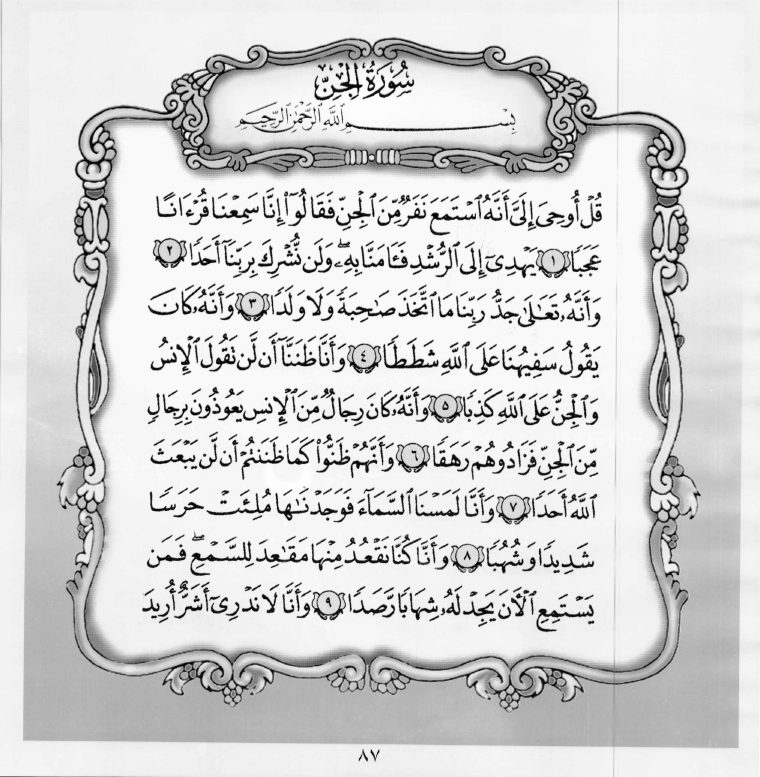 سُورَةُ الجِنِّ
بِسْمِ اللَّهِ الرَّحْمَٰنِ الرَّحِيمِ
قُلْ أُوحِىَ إِلَىَّ أَنَّهُ ٱسْتَمَعَ نَفَرٌ مِّنَ ٱلْجِنِّ فَقَالُوٓا۟ إِنَّا سَمِعْنَا قُرْءَانًا
عَجَبًا ١ يَهْدِىٓ إِلَى ٱلرُّشْدِ فَـَٔامَنَّا بِهِۦ ۖ وَلَن نُّشْرِكَ بِرَبِّنَآ أَحَدًا ٢
وَأَنَّهُۥ تَعَٰلَىٰ جَدُّ رَبِّنَا مَا ٱتَّخَذَ صَٰحِبَةً وَلَا وَلَدًا ٣ وَأَنَّهُۥ كَانَ
يَقُولُ سَفِيهُنَا عَلَى ٱللَّهِ شَطَطًا ٤ وَأَنَّا ظَنَنَّآ أَن لَّن نَقُولَ ٱلْإِنسُ
وَٱلْجِنُّ عَلَى ٱللَّهِ كَذِبًا ٥ وَأَنَّهُۥ كَانَ رِجَالٌ مِّنَ ٱلْإِنسِ يَعُوذُونَ بِرِجَالٍ
مِّنَ ٱلْجِنِّ فَزَادُوهُمْ رَهَقًا ٦ وَأَنَّهُمْ ظَنُّوا۟ كَمَا ظَنَنتُمْ أَن لَّن يَبْعَثَ
ٱللَّهُ أَحَدًا ٧ وَأَنَّا لَمَسْنَا ٱلسَّمَآءَ فَوَجَدْنَٰهَا مُلِئَتْ حَرَسًا
شَدِيدًا وَشُهُبًا ٨ وَأَنَّا كُنَّا نَقْعُدُ مِنْهَا مَقَٰعِدَ لِلسَّمْعِ ۖ فَمَن
يَسْتَمِعِ ٱلْـَٔانَ يَجِدْ لَهُۥ شِهَابًا رَّصَدًا ٩ وَأَنَّا لَا نَدْرِىٓ أَشَرٌّ أُرِيدَ
٨٧